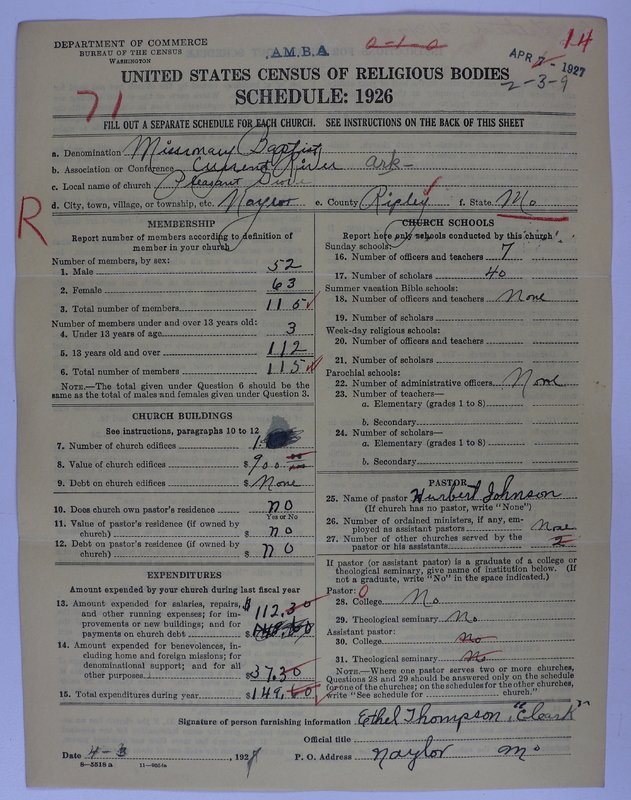 DEPARTMENT OF COMMERCE
BUREAU OF THE CENSUS
WASHINGTON
A.M.B.A.
0-1-0
14
APR 7 - 1927
2-3-9
UNITED STATES CENSUS OF RELIGIOUS BODIES
SCHEDULE: 1926
71
FILL OUT A SEPARATE SCHEDULE FOR EACH CHURCH. SEE INSTRUCTIONS ON THE BACK OF THIS SHEET
a. Denomination Missionary Baptist
b. Association or Conference Current River Ark-
c. Local name of church Pleasant Grove
d. City, town, village, or township, etc. Naylor e. County Ripley f. State Mo
R
MEMBERSHIP
Report number of members according to definition of member in your church
Number of members, by sex:
1. Male 52
2. Female 63
3. Total number of members 115
Number of members under and over 13 years old:
4. Under 13 years of age 3
5. 13 years old and over 112
6. Total number of members 115
NOTE.—The total given under Question 6 should be the same as the total of males and females given under Question 3.
CHURCH BUILDINGS
See instructions, paragraphs 10 to 12
7. Number of church edifices 1
8. Value of church edifices $ 900
9. Debt on church edifices $ None
10. Does church own pastor's residence no
Yes or No
11. Value of pastor's residence (if owned by church) $ no
12. Debt on pastor's residence (if owned by church) $ no
EXPENDITURES
Amount expended by your church during last fiscal year
13. Amount expended for salaries, repairs, and other running expenses; for improvements or new buildings; and for payments on church debt $ 112.30
14. Amount expended for benevolences, including home and foreign missions; for denominational support; and for all other purposes $ 37.30
15. Total expenditures during year $ 149.60
CHURCH SCHOOLS
Report here only schools conducted by this church
Sunday schools:
16. Number of officers and teachers 7
17. Number of scholars 40
Summer vacation Bible schools:
18. Number of officers and teachers None
19. Number of scholars
Week-day religious schools:
20. Number of officers and teachers
21. Number of scholars
Parochial schools:
22. Number of administrative officers None
23. Number of teachers—
a. Elementary (grades 1 to 8)
b. Secondary
24. Number of scholars—
a. Elementary (grades 1 to 8)
b. Secondary
PASTOR
25. Name of pastor Hurbert Johnson
(If church has no pastor, write "None")
26. Number of ordained ministers, if any, employed as assistant pastors None
27. Number of other churches served by the pastor or his assistants 2
If pastor (or assistant pastor) is a graduate of a college or theological seminary, give name of institution below. (If not a graduate, write "No" in the space indicated.)
Pastor: 0
28. College No
29. Theological seminary No
Assistant pastor:
30. College no
31. Theological seminary no
NOTE.—Where one pastor serves two or more churches, Questions 28 and 29 should be answered only on the schedule for one of the churches; on the schedules for the other churches, write "See schedule for church."
Signature of person furnishing information Ethel Thompson, "Cleark"
Official title
Date 4-3, 1927 P. O. Address Naylor Mo
8-5518 a 11-9554a